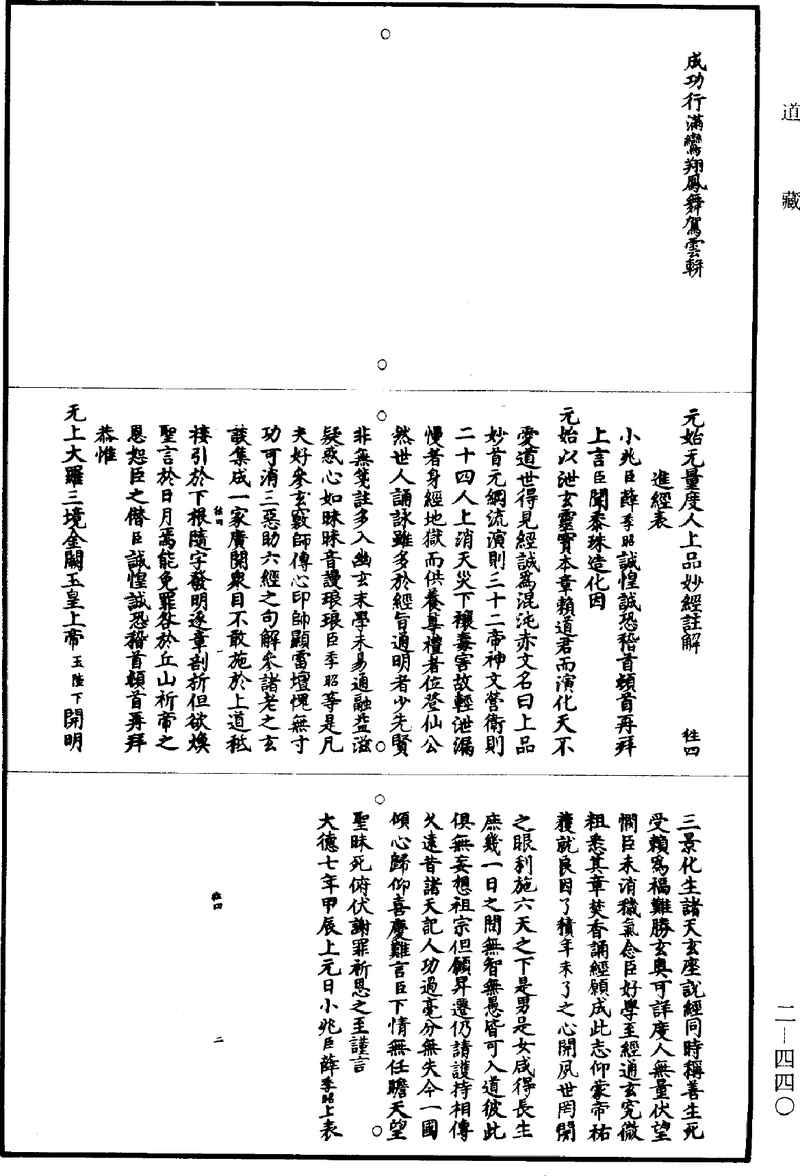 道藏
成功行滿鸞翔鳳舞駕雲軿
元始无量度人上品妙經註解 牲四
進經表
小兆臣薛季昭誠惶誠恐稽首頓首再拜
上言臣聞黍珠造化因
元始以泄玄靈寶本章賴道君而演化天不
愛道世得見經誠為混沌赤文名曰上品
妙首元綱流演則三十二帝神文營衛則
二十四人上消天災下禳毒害故輕泄漏
慢者身經地獄而供養尊禮者位登仙公
然世人誦詠雖多於經旨通明者少先賢
非無箋註多入幽玄末學未易通融益滋
疑惑心如昧昧音謾琅琅臣季昭等是凡
夫好參玄竅師傳心印帥顯雷壇愧無寸
功可消三惡助六經之句解參諸老之玄
談集成一家廣開衆目不敢施於上道秪
牲四 一
接引於下根隨字發明逐章剖析但欲煥
聖言於日月焉能免罪咎於丘山祈帝之
恩恕臣之僭臣誠惶誠恐稽首頓首再拜
恭惟
无上大羅三境金闕玉皇上帝玉陛下開明
三景化生諸天玄座說經同時稱善生死
受賴為福難勝玄奧可詳度人無量伏望
憫臣未消穢氣念臣好學至經通玄究微
祖悉其章焚香誦經願成此志仰蒙帝祐
獲就良因了積年未了之心開夙世罔開
之眼利施六天之下是男是女咸得長生
庶幾一日之間無智無愚皆可入道彼此
俱無妄想祖宗但願昇遷仍請護持相傳
久遠昔諸天記人功過毫分無失今一國
傾心歸仰喜慶難言臣下情無任瞻天望
聖昧死俯伏謝罪祈恩之至謹言
大德七年甲辰上元日小兆臣薛季昭上表
牲四 二
二—四四〇